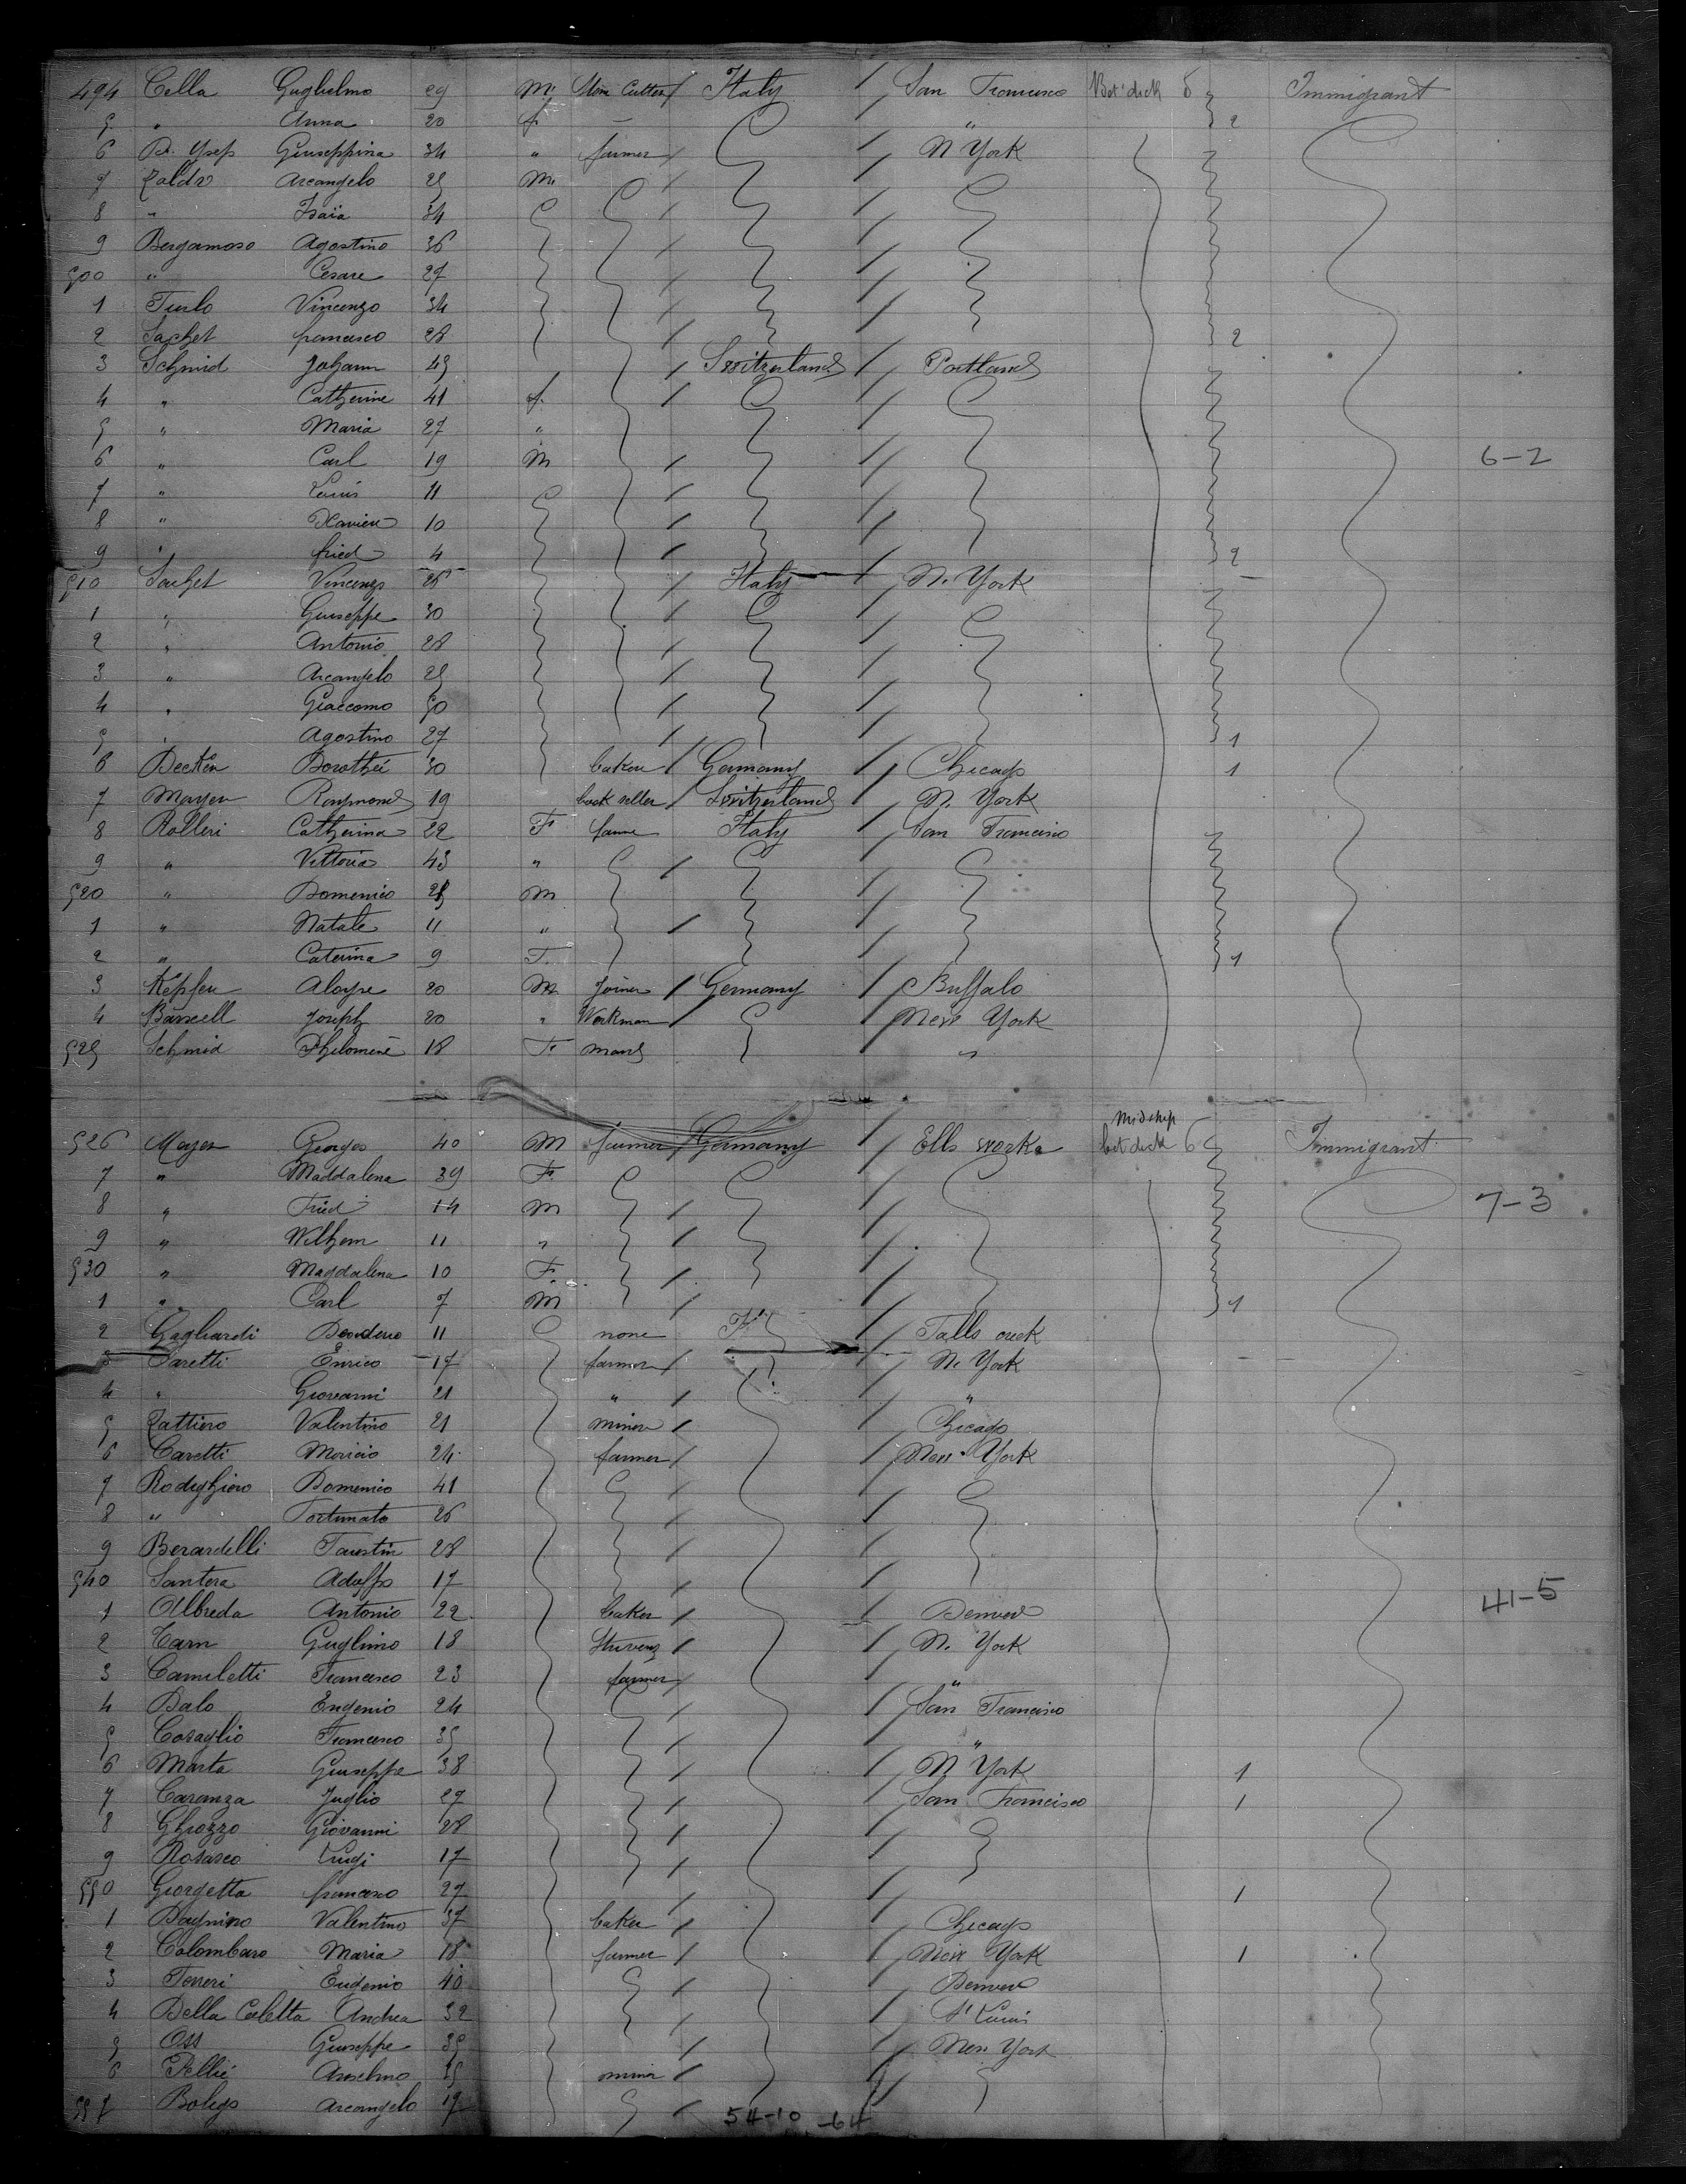 494 Cella Guglielmo 29 M. Stone Cutter Italy San Francisco Bet deck 6 Immigrant
5 " Anna 20 f. — " 2
6 Giuseppina 34 " farmer N York
7 Zaldo Arcangelo 25 M.
8 " Isaïa 34
9 Bergamoso Agostino 36
500 " Cesare 27
1 Vincenzo 34
2 Sachet francesco 28 2
3 Schmid Johann 45 Switzerland Portland
4 " Catherine 41 f.
5 " Maria 27 "
6 " Carl 19 M 6-2
7 " Louis 11
8 " Xavier 10
9 " fried 4 2
510 Sachet Vincenzo 26 Italy N. York
1 " Giuseppe 30
2 " Antonio 28
3 " Arcangelo 25
4 " Giaccomo 50
5 " Agostino 27 1
6 Becker Dorothei 30 baker Germany Chicago 1
7 Mayer Raymond 19 book seller Switzerland N. York
8 Rolleri Catherina 22 F farmer Italy San Francisco
9 " Vittoria 43 "
520 " Domenico 25 M
1 " Natale 11 "
2 " Caterina 9 F. 1
3 Kepfer Aloyse 20 M Joiner Germany Buffalo
4 Joseph 20 " Workman New York
525 Schmid Philomene 18 F. "
Midship
526 Mayer Georges 40 M farmer Germany Ells worke bet deck 6 Immigrant
7 " Maddalena 39 F. 7-3
8 " Fried 14 M
9 " Wilhem 11 "
530 " Magdalena 10 F.
1 " Carl 7 M 1
2 Gagliardi 11 none Falls creek
3 Caretti Enrico 17 farmer N. York
4 " Giovanni 21 " "
5 Zattiero Valentino 21 miner Chicago
6 Caretti Moricio 24 farmer New York
7 Rodighiero Domenico 41
8 " Fortunato 26
9 Berardelli Faustin 28
540 Santera Adolfo 17 41-5
1 Albreda Antonio 22 baker Denver
2 Carn Guglimo 18 N. York
3 Camiletti Francesco 23 farmer "
4 Dalo Eugenio 24 San Francisco
5 Coraglio Francesco 35 "
6 Marta Giuseppe 38 N York 1
7 Caranza Juglio 27 San Francisco 1
8 Ghiozzo Giovanni 28
9 Rosasco Luigi 17
550 Giorgetta francesco 27 1
1 Bagnino Valentino 37 baker Chicago
2 Colombaro Maria 18 farmer New York 1
3 Torreri Eugenio 40 Denver
4 Della Coletta Andrea 32 St Louis
5 Oss Giuseppe 35 New York
6 Pellié Anselmo 25 miner
557 Bolego Arcangelo 17
54-10-64